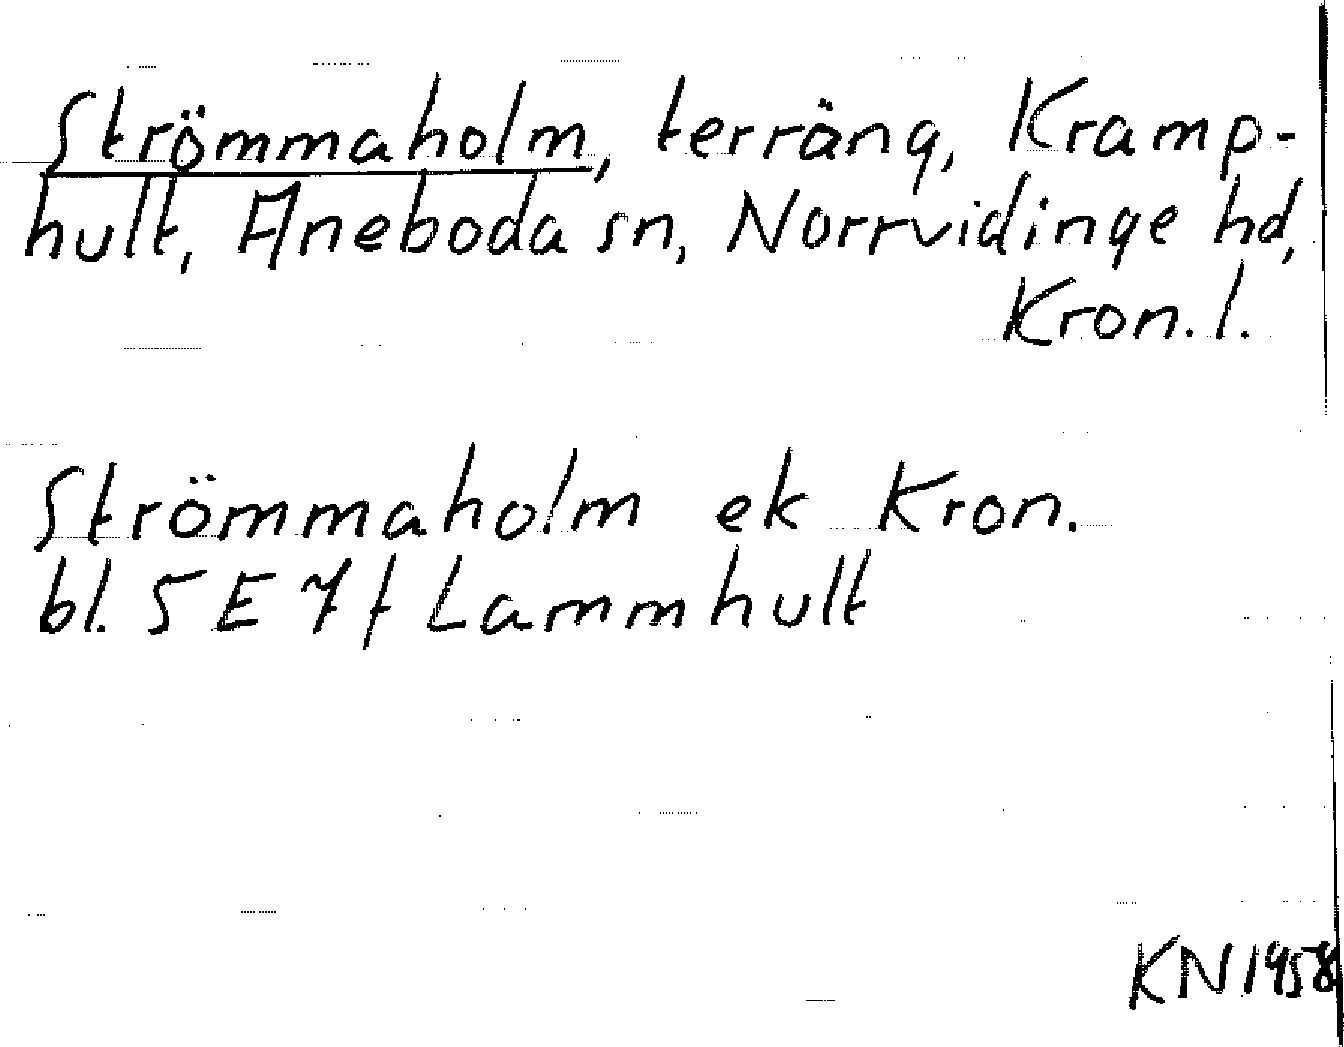 Strömmaholm, terräng, Kramp-
hult, Aneboda sn, Norrvidinge hd,
Kron. l.
Strömmaholm ek Kron.
bl. 5 E 7 f Lammhult
KN 1958